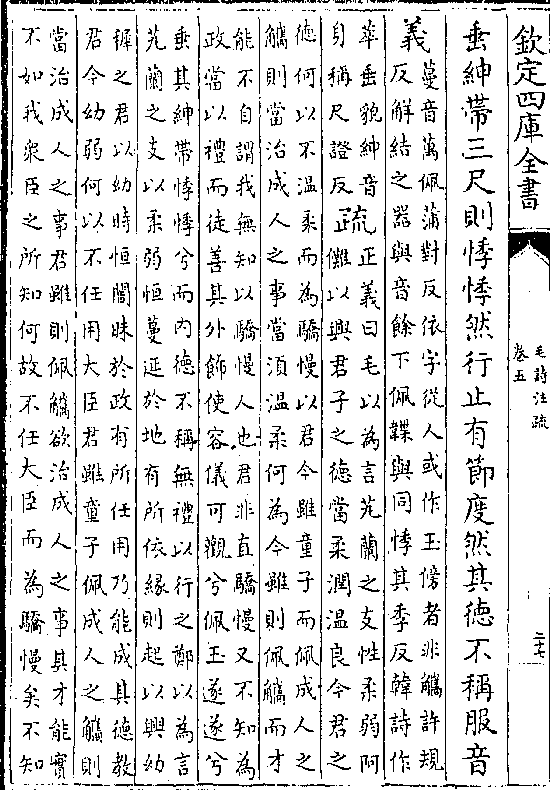 欽定四庫全書
毛詩注疏
卷五
二十七
垂紳帶三尺則悸悸然行止有節度然其德不稱服音
義
蔓音萬佩蒲對反依字從人或作玉傍者非觿許規
反解結之器與音餘下佩韘與同悸其季反韓詩作
萃垂貌紳音
身稱尺證反
疏
正義曰毛以為言芄蘭之支性柔弱阿
儺以興君子之德當柔潤温良今君之
德何以不温柔而為驕慢以君今雖童子而佩成人之
觿則當治成人之事當須温柔何為今雖則佩觿而才
能不自謂我無知以驕慢人也君非直驕慢又不知為
政當以禮而徒善其外飾使容儀可觀兮佩玉遂遂兮
垂其紳帶悸悸兮而内德不稱無禮以行之鄭以為言
芄蘭之支以柔弱恒蔓延於地有所依緣則起以興幼
穉之君以幼時恒闇昧於政有所任用乃能成其德教
君今幼弱何以不任用大臣君雖童子佩成人之觿則
當治成人之事君雖則佩觿欲治成人之事其才能實
不如我衆臣之所知何故不任大臣而為驕慢矣不知